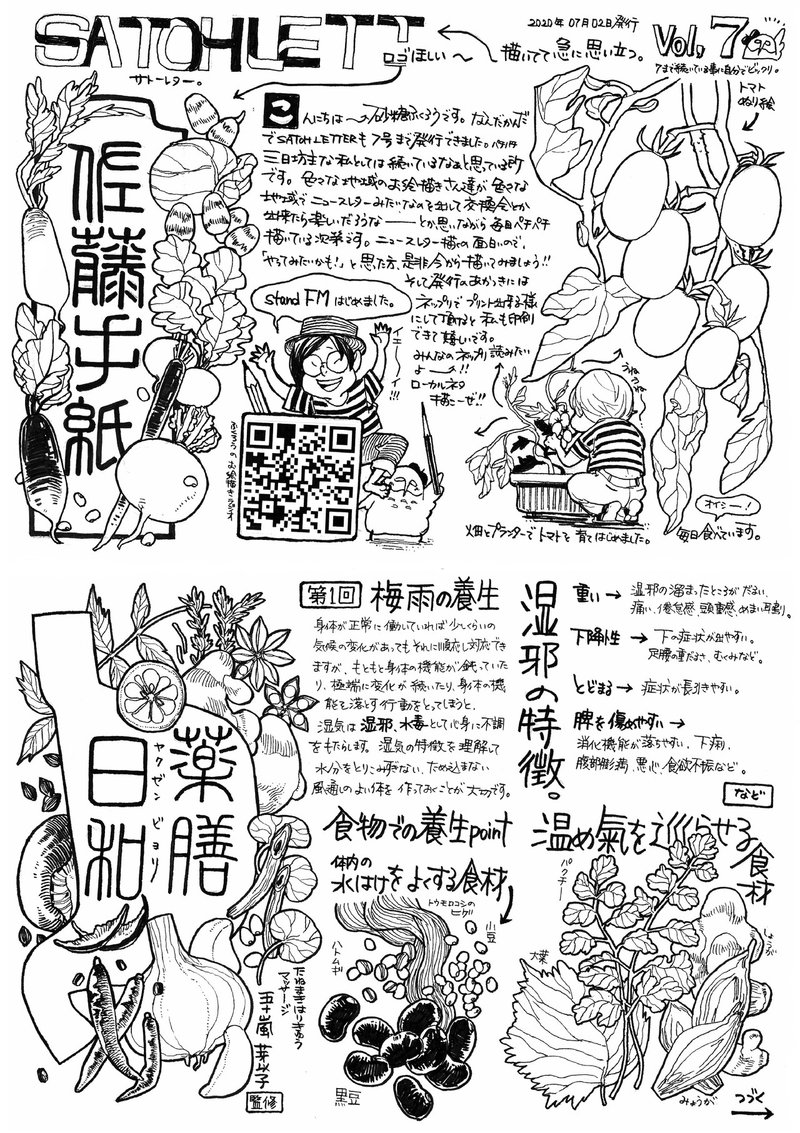 SATOHLETT
サトーレター。
ロゴほしい〜
描いてて急に思い立つ。
2020年07月02日発行
Vol,7
7まで続いている事に自分でビックリ。
トマト
ぬり絵
佐藤手紙
こんにちは〜砂糖ふくろうです。なんだかんだ
でSATOH LETTERも7号まで発行できました。パチパチ
三日坊主な私としては続いているなぁと思っている所
です。色々な地域のお絵描きさん達が色々な
地域でニュースレターみたいなのを出して交換会とか
出来たら楽しいだろうな——とか思いながら毎日ペチペチ
描いている次第です。ニュースレター描くの面白いので、
「やってみたいかも!」と思った方、是非今から描いてみましょう!!
そして発行のあかつきには
ネップリでプリント出来る様
にして頂けると私も印刷
できて嬉しいです。
みんなのネップリ読みたい
よ〜!!
ローカルネタ
描こーぜ!!
stand FMはじめました。
イエーーイ!!!
ふくろうのお絵描きラジオ
畑とプランターでトマトを育てはじめました。
オイシー!
毎日食べています。
薬膳
日和
ヤクゼン
ビヨリ
たねまきはりきゅう
マッサージ
五十嵐 芽以子
監修
第1回 梅雨の養生
身体が正常に働いていれば少しくらいの
気候の変化があってもそれに順応し対応でき
ますが、もともと身体の機能が鈍っていた
り、極端に変化が続いたり、身体の機
能を落とす行動をとってしまうと、
湿気は湿邪、水毒として心身に不調
をもたらします。湿気の特徴を理解して
水分をとりこみすぎない、ため込まない
風通しのよい体を作っておくことが大切です。
湿邪の特徴。
重い→湿邪の溜まったところがだるい、
痛い、倦怠感、頭重感、めまい、耳鳴り。
下降性→下の症状が出やすい。
足腰の重だるさ、むくみなど。
とどまる→症状が長引きやす。
脾を傷めやすい→
消化機能が落ちやすい、下痢、
腹部膨満、悪心、食欲不振など。
など
食物での養生point
体内の
水はけをよくする食材
トウモロコシの
ヒゲ
小豆
ハトムギ
黒豆
温め氣を巡らせる
食材
パクチー
大葉
しょうが
みょうが
つづく